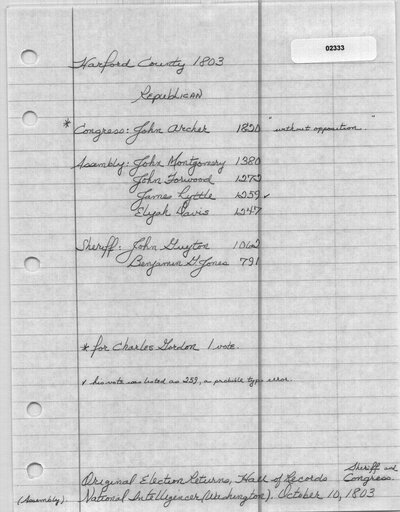 02333
Harford County 1803
Republican
* Congress: John Archer 1820 "without opposition."
Assembly: John Montgomery 1380
John Forwood 1272
James Lyttle 1259 ✓
Elijah Davis 1247
Sheriff: John Guyton 1062
Benjamin G. Jones 791
* for Charles Gordon 1 vote.
✓ his vote was listed as 259, a probable typo error.
Original Election Returns, Hall of Records Sheriff and Congress.
(Assembly). National Intelligencer (Washington). October 10, 1803